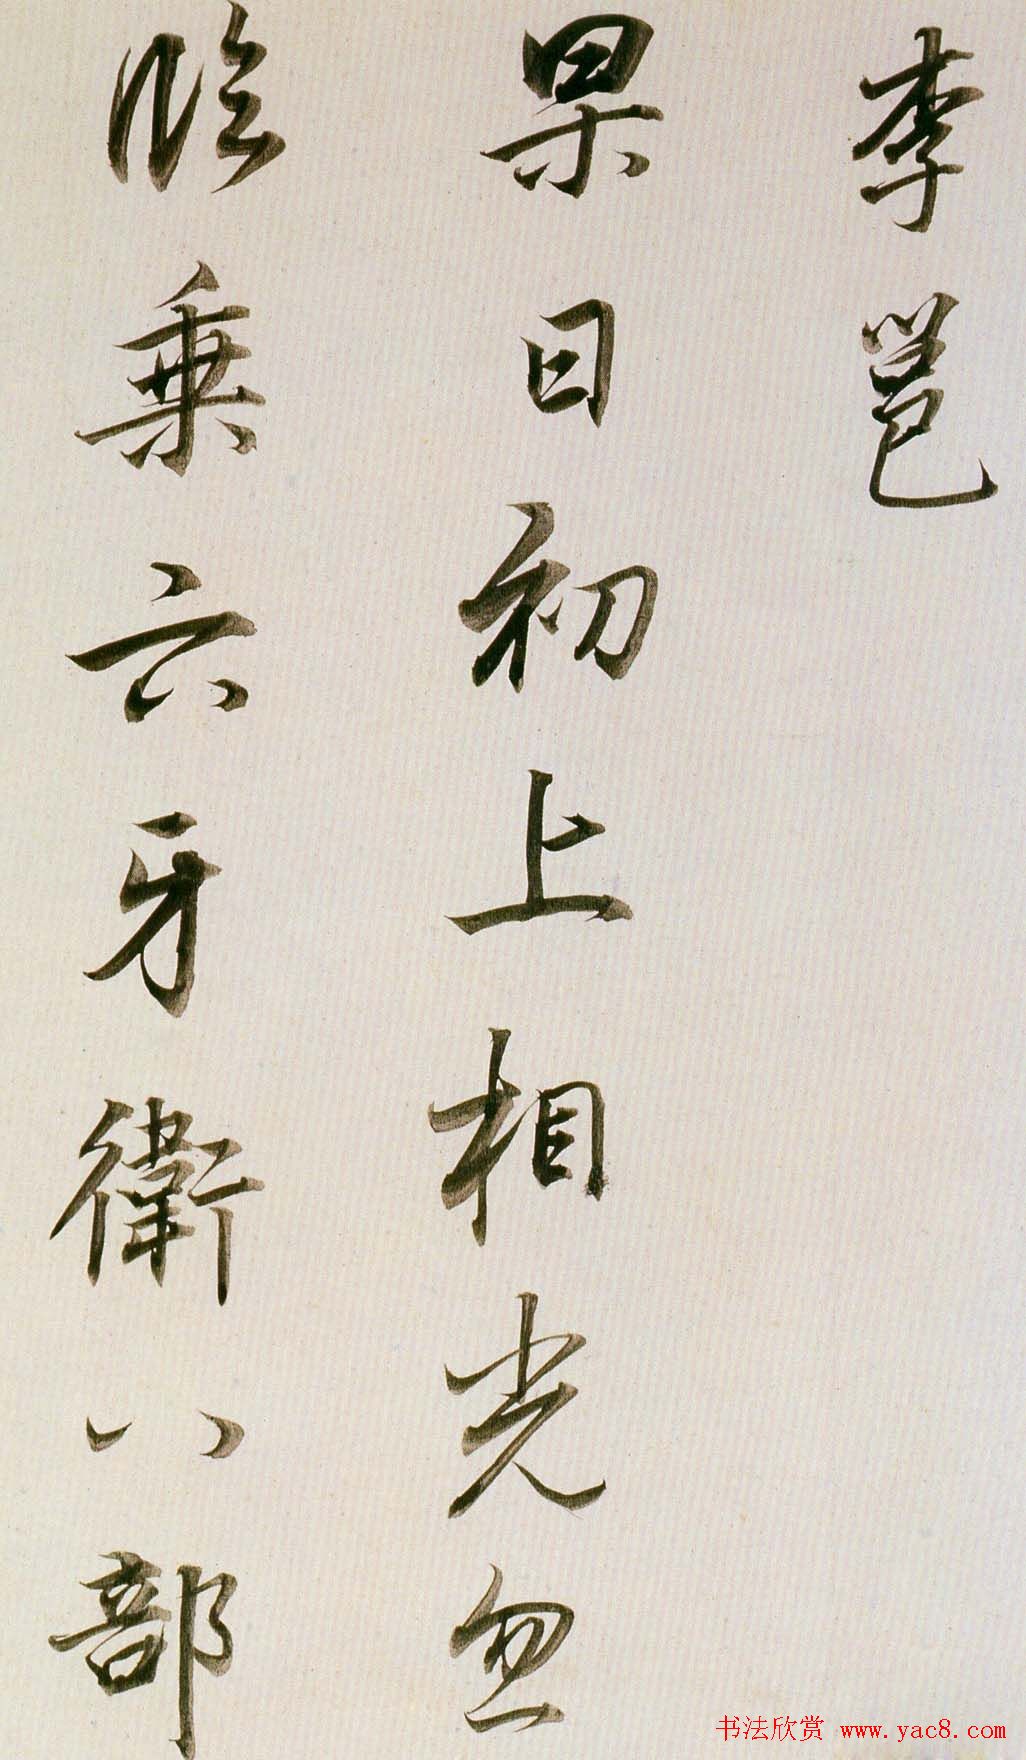 李邕
杲日初上相光忽
临乗六牙衛八部
书法欣赏 www.yac8.com